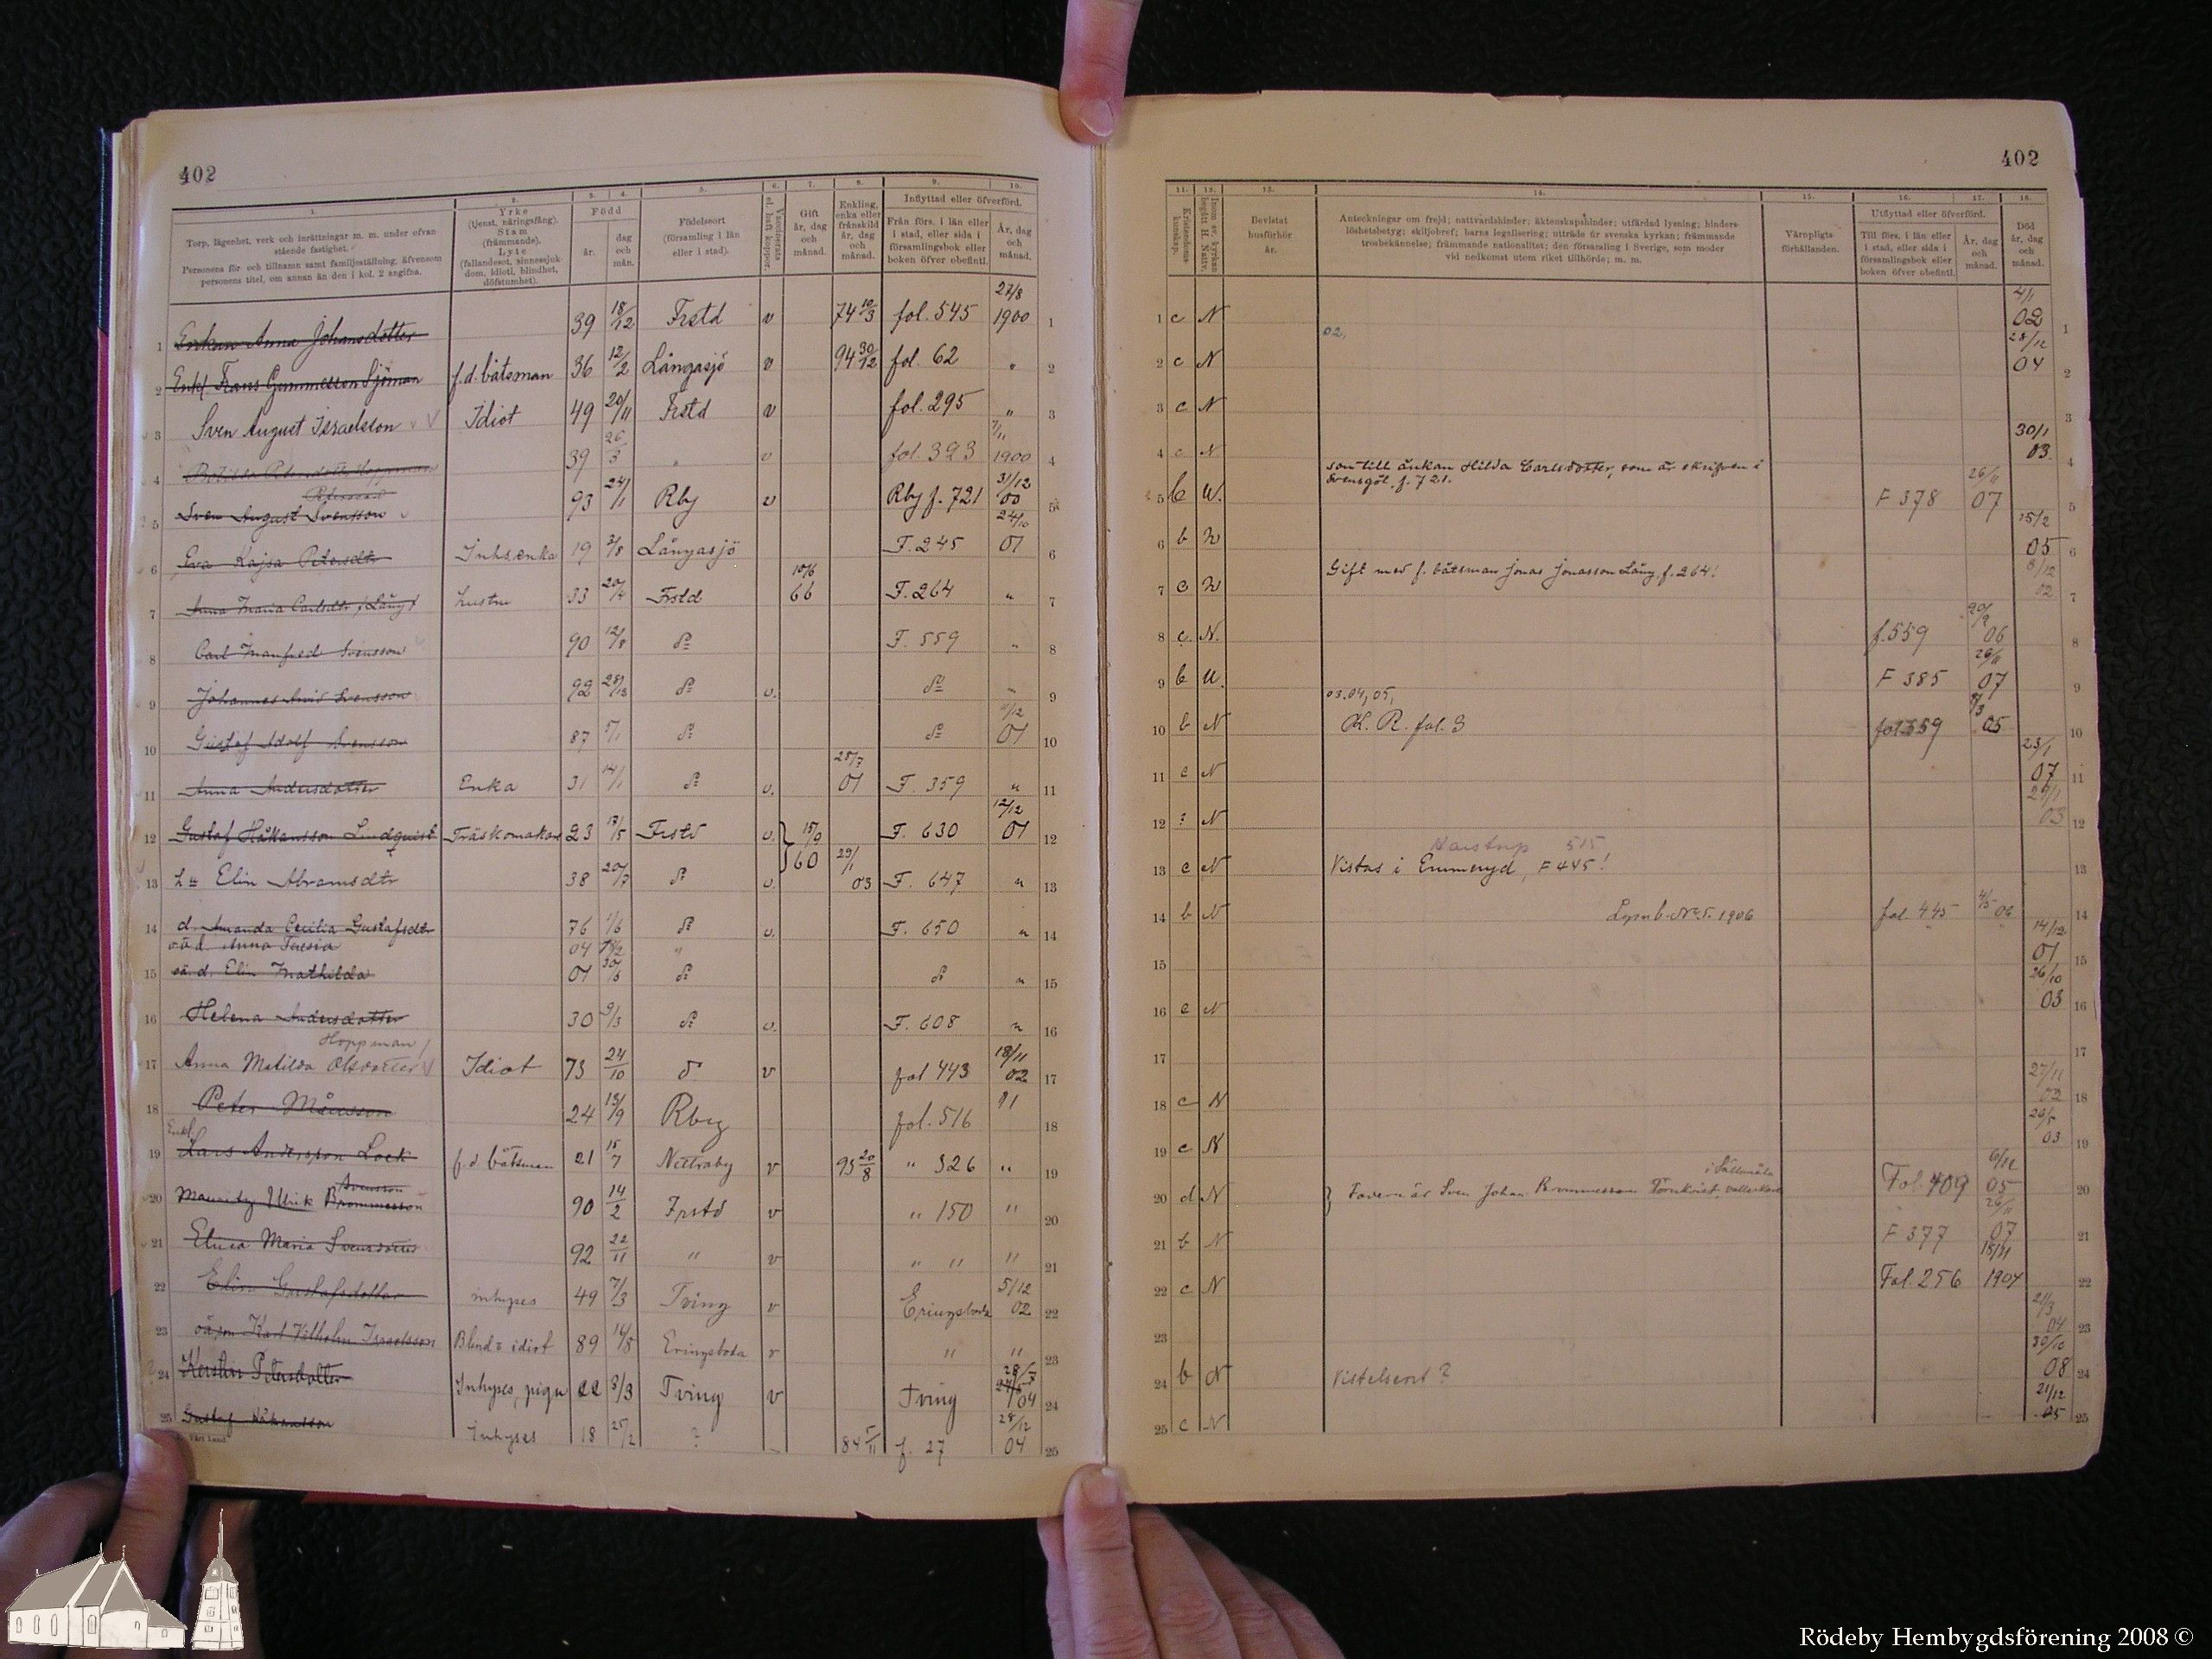 402
1. 2. 3. 4. 5. 6. 7. 8. 9. 10.
Torp, lägenhet, verk och inrättningar m. m. under ofvan stående fastighet.
Personens för- och tillnamn samt familjeställning, äfvensom personens titel, om annan än den i kol. 2 angifna.
Yrke (tjenst, näringsfång). Stam (främmande). Lyte (fallandesot, sinnessjukdom, idioti, blindhet, döfstumhet).
Född
år. dag och mån.
Födelseort (församling i län eller i stad).
Vaccinerats el. haft koppor.
Gift år, dag och månad.
Enkling, enka eller frånskild år, dag och månad.
Inflyttad eller öfverförd.
Från förs. i län eller i stad, eller sida i församlingsbok eller boken öfver obefintl.
År, dag och månad.
1 Enkan Anna Johansdotter 39 18/12 Frstd v 74 10/3 fol. 545 27/8 1900 1
2 Enkl. Frans Gummesson Sjöman f.d. båtsman 36 12/2 Långasjö v 94 30/12 fol. 62 " 2
3 Sven August Israelsson Idiot 49 20/11 Frstd v fol. 295 " 3
4 39 26/3 " v fol. 393 7/11 1900 4
5 Sven August Svensson 93 24/1 Rby v Rby f. 721 31/12 00 5
6 Eva Kajsa Petersdtr Inhs. enka 19 Långasjö F. 245 24/10 01 6
7 Anna Maria Carlsdtr (Lång) hustru 33 Frstd 10/6 66 F. 264 " 7
8 Carl Manfred Svensson 90 12/8 do F. 559 " 8
9 Johannes Arvid Svensson 92 do v. do " 9
10 Gustaf Adolf Svensson 87 do do 01 10
11 Anna Andersdotter Enka 31 14/1 do v. 28/7 01 F. 359 " 11
12 Gustaf Håkansson Lindquist Träskomakare 23 Frstd v. 15/9 60 F. 630 12/12 01 12
13 hu Elin Abramsdtr 38 20/7 do v. 29/1 03 F. 647 " 13
14 d. Amanda Cecilia Gustafsdtr 76 1/6 do v. F. 650 " 14
oä d. Anna 04 "
15 oä. d. Elin Mathilda 01 30/6 do do " 15
16 Helena Andersdotter 30 9/3 do v. F. 608 " 16
Hoppman
17 Anna Matilda Olsdotter Idiot 73 24/10 do v fol 443 18/11 02 17
18 Peter Månsson 24 Rby fol. 516 18
Enkl.
19 Lars Andersson Lock f.d. båtsman 21 15/7 Nättraby v 95 20/8 " 326 " 19
Svensson
20 Mauritz Ulrik Brommesson 90 14/2 Frstd v " 150 " 20
21 Elina Maria Svensdotter 92 22/11 " v " " " 21
22 Elin Gustafsdotter inhyses 49 7/3 Tving v Eringsboda 5/12 02 22
23 oä son Karl Vilhelm Israelsson Blind o idiot 89 Eringsboda v " " 23
24 Kerstin Petersdotter Inhyses, piga 22 8/3 Tving v Tving 04 24
25 Gustaf Håkansson Inhyses 18 25/2 ? 84 5/11 f. 27 28/12 04 25
402
11. 12. 13. 14. 15. 16. 17. 18.
Kristendomskunskap.
Inom sv. kyrkan begått H. Nattv.
Bevistat husförhör år.
Anteckningar om frejd; nattvardshinder; äktenskapshinder; utfärdad lysning; hinderslöshetsbetyg; skiljobref; barns legalisering; utträde ur svenska kyrkan; främmande trosbekännelse; främmande nationalitet; den församling i Sverige, som moder vid nedkomst utom riket tillhörde; m. m.
Värnpligtsförhållanden.
Utflyttad eller öfverförd.
Till förs. i län eller i stad, eller sida i församlingsbok eller boken öfver obefintl.
År, dag och månad.
Död år, dag och månad.
1 c N 02, 4/1 02 1
2 c N 28/12 04 2
3 c N 3
4 c N 30/1 03 4
son till änkan Hilda Carlsdotter, som är skrifven i
5 b U. Svensgöl, f. 721. F 378 26/11 07 5
6 b N 15/2 05 6
7 c N Gift med f. båtsman Jonas Jonasson Lång, f. 264! 8/12 02 7
8 c. N. f. 559 20/9 06 8
9 b U. F 385 26/11 07 9
03, 04, 05,
10 b N K. R. fol. 3 fol 559 05 10
11 c N 23/1 07 11
12 : N 29/1 03 12
515
13 c N Vistas i Emmeryd, F 445! 13
14 b N Lysn.b. No 5. 1906 fol. 445 4/5 06 14
15 14/12 01 15
16 c N 26/10 03 16
17 17
18 c N 27/11 02 18
19 c N 03 19
i
20 d N } Fadern är Sven Johan Brommesson Törnkvist Fol. 409 6/12 05 20
21 b N F 377 26/11 07 21
22 c N Fol. 256 1904 22
23 21/3 04 23
24 b N Vistelseort? 30/10 08 24
25 c N 21/12 05 25
Rödeby Hembygdsförening 2008 ©